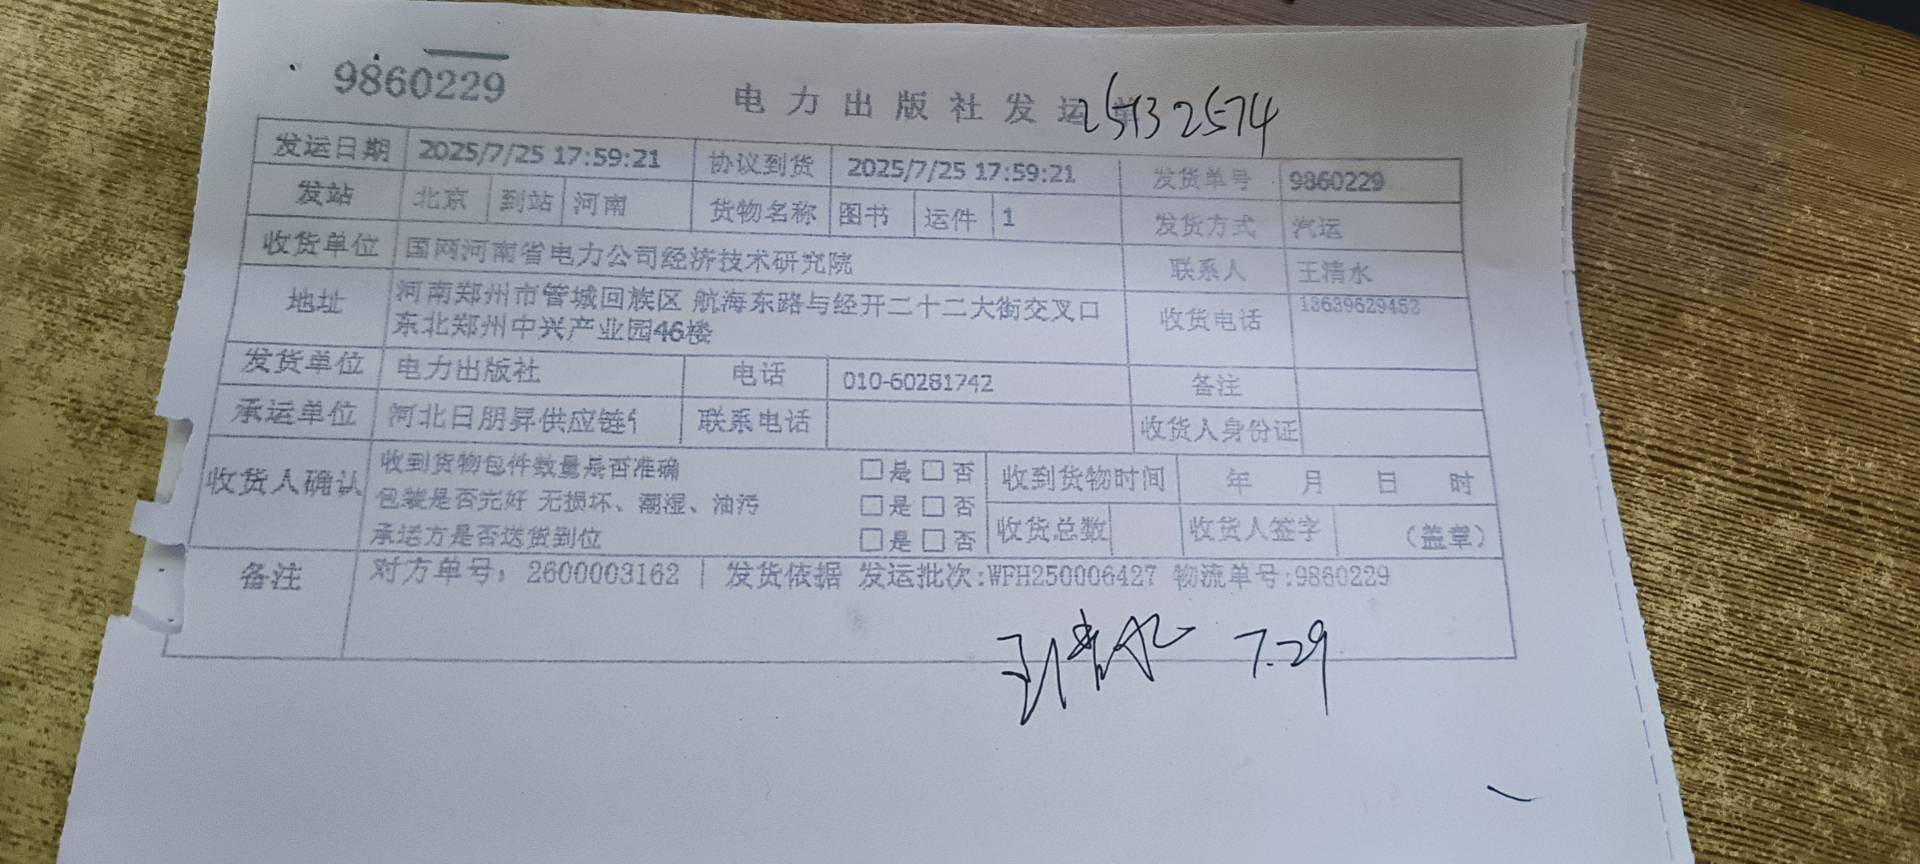 9860229
电力出版社发运单 25132574
发运日期 2025/7/25 17:59:21 协议到货 2025/7/25 17:59:21 发货单号 9860229
发站 北京 到站 河南 货物名称 图书 运件 1 发货方式 汽运
收货单位 国网河南省电力公司经济技术研究院 联系人 王清水
地址 河南郑州市管城回族区 航海东路与经开二十二大街交叉口 收货电话 18639629452
东北郑州中兴产业园46楼
发货单位 电力出版社 电话 010-60281742 备注
承运单位 河北日朋昇供应链 联系电话 收货人身份证
收货人确认 收到货物包件数量是否准确 □是□否 收到货物时间 年 月 日 时
包装是否完好 无损坏、潮湿、油污 □是□否
承运方是否送货到位 □是□否 收货总数 收货人签字 （盖章）
备注 对方单号：2600003162 | 发货依据 发运批次:WFH250006427 物流单号:9860229
王清水 7.29